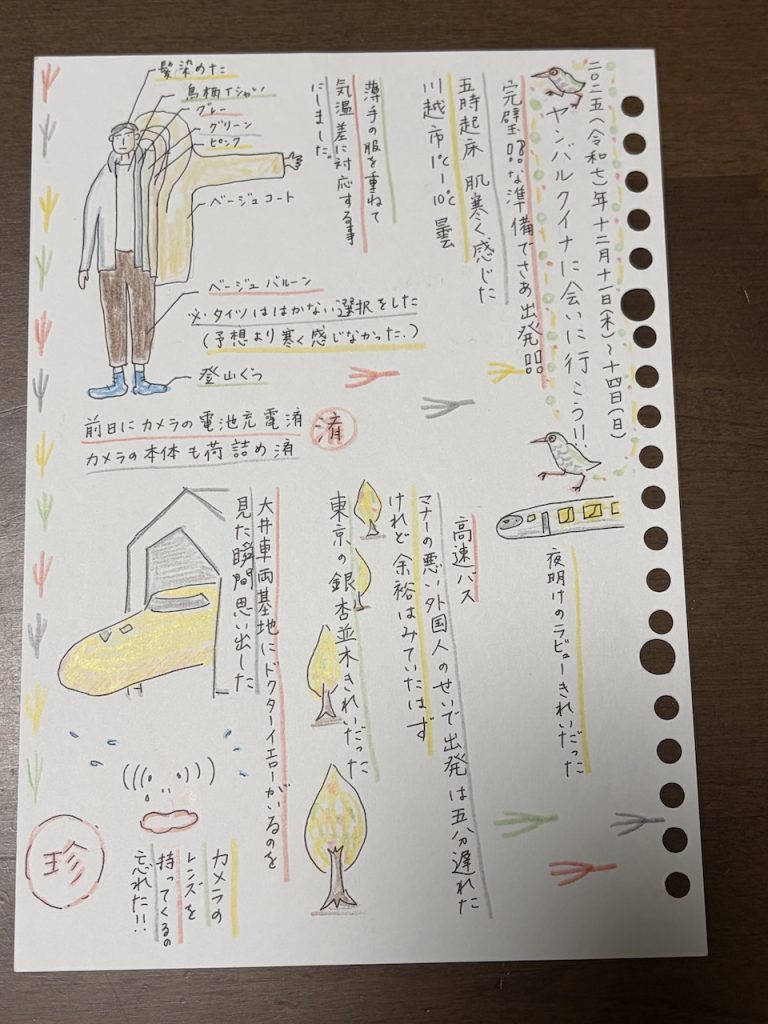 二〇二五(令和七)年十二月十一日(木)〜十四日(日)
ヤンバルクイナに会いに行こう!!
完璧!?な準備でさあ出発!!
五時起床 肌寒く感じた
川越市1℃–10℃ 曇
薄手の服を重ねて
気温差に対応する事
にしました。
髪染めた
鳥柄Tシャツ
グレー
グリーン
ピンク
ベージュコート
ベージュバルーン
※タイツははかない選択をした
(予想より寒く感じなかった.)
登山ぐつ
前日にカメラの電池充電済
カメラの本体も荷詰め済
済
夜明けのラビューきれいだった
高速バス
マナーの悪い外国人のせいで出発は五分遅れた
けれど余裕はみていたはず
東京の銀杏並木きれいだった
大井車両基地にドクターイエローがいるのを
見た瞬間思い出した
カメラの
レンズを
持ってくるの
忘れた!!
珍